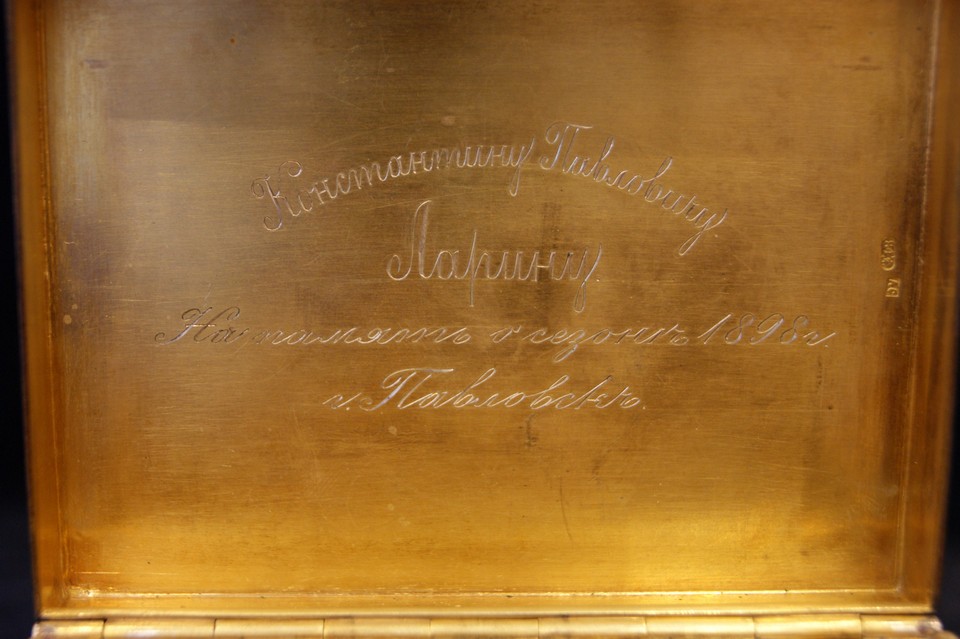 Константину Павловичу
Ларину
На память о сезонѣ 1898 г.
г. Павловскъ.